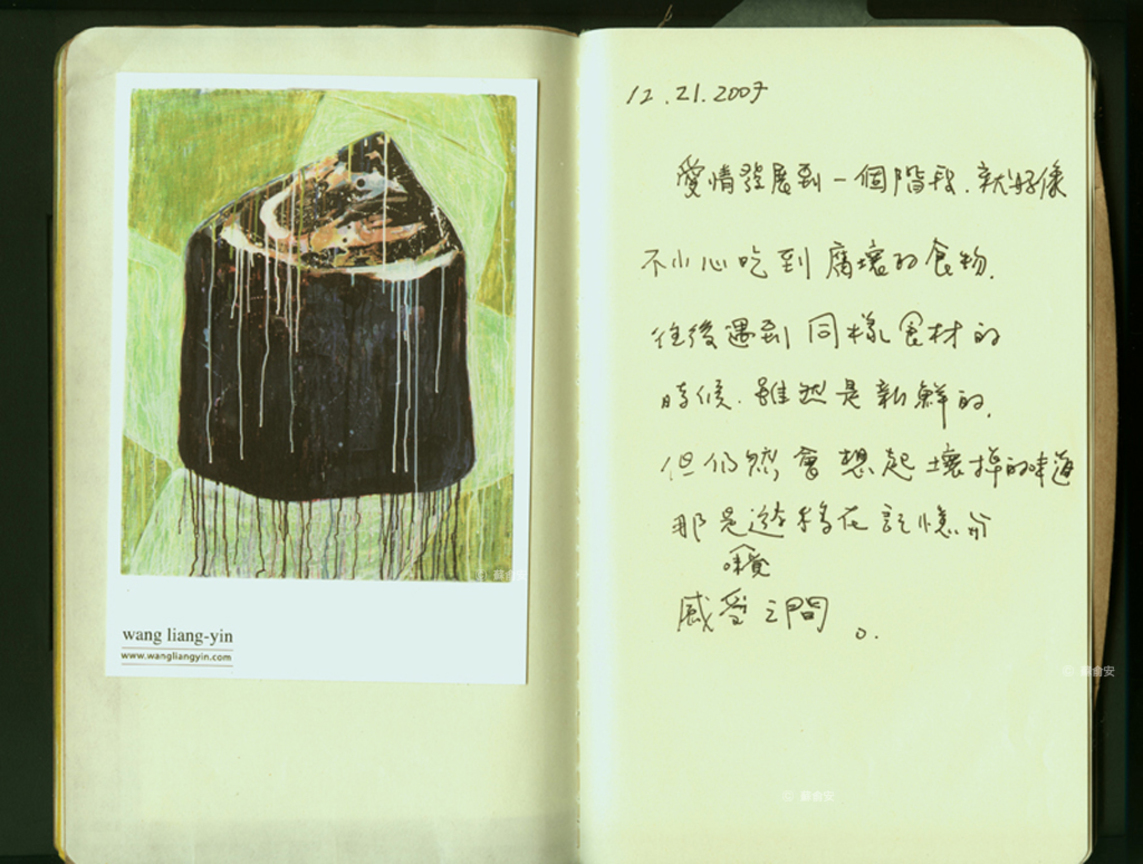 wang liang-yin
www.wangliangyin.com
12.21.2007
愛情發展到一個階段.就好像
不小心吃到腐壞的食物.
往後遇到同樣食材的
時候.雖然是新鮮的.
但仍然會想起壞掉的味道
那是遊移在記憶所
味覺
感受之間。